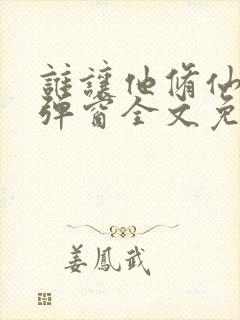 誰讓他脩仙
彈窗全文免
姜鳳武